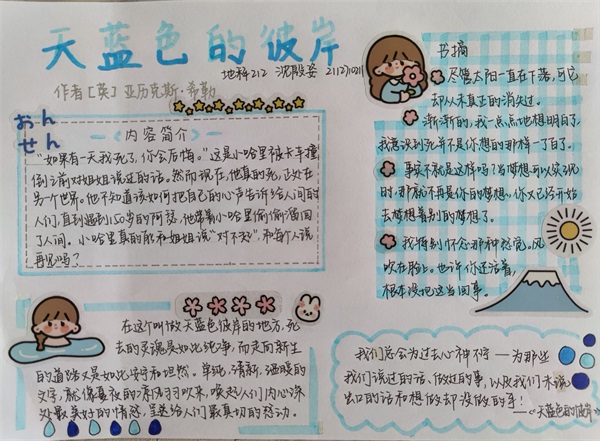 天蓝色的彼岸
地科212 沈殷姿
作者[英]亚历克斯·希勒
おん
せん
内容简介
“如果有一天我死了,你会后悔。”这是小哈里被卡车撞
倒之前对姐姐说过的话。然而现在,他真的死,正处在
另个世界。他不知道该如何把自己的心声告诉给人间的
人们,直到遇到150岁的阿瑟,他带着小哈里偷偷溜回
了人间。小哈里真的能和姐姐说“对不起”,和每个人说
再见吗?
在这个叫做天蓝色彼岸的地方,死
去的灵魂是如此纯净,而走向新生
的道路又是如此安宁和坦然。单纯、清新、温暖的
文字,就像夏夜的凉风习习吹来,唤起人们内心深
处最美好的情感,呈送给人们最真切的感动。
书摘
尽管太阳一直在下落,可它
却从未真正的消失过。
渐渐的,我一点点地想明白了,
我意识到死并不是你想的那样一了百了。
事实不就是这样吗?当梦想可以实现
时,那就不再是你的梦想,你又已经开始
去梦想着别的梦想了。
我特别怀念那种感觉。风
吹在脸上。也许你还活着,
根本没把这当回事。
我们总会为过去心神不宁——为那些
我们说过的话、做过的事,以及我们未说
出口的话和想做却没做的事!
——《天蓝色的彼岸》